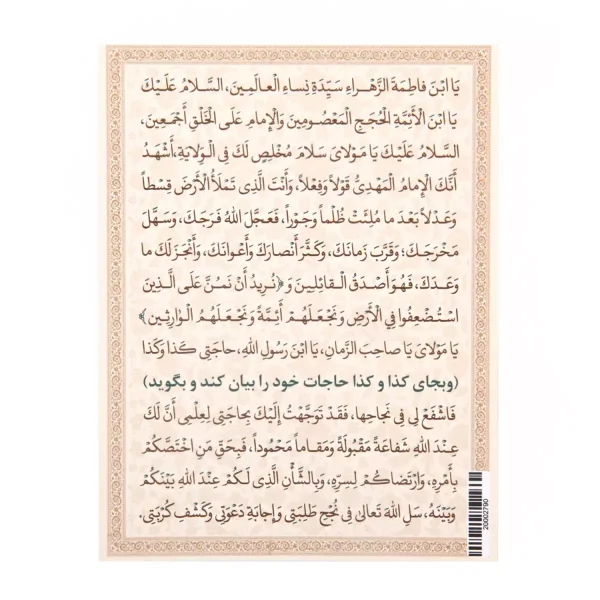 يَا ابْنَ فاطِمَةَ الزَّهْراءِ سَيِّدَةِ نِساءِ الْعالَمينَ، السَّلامُ عَلَيْكَ
يَا ابْنَ الْأَئِمَّةِ الْحُجَجِ الْمَعْصُومينَ وَالْإِمامِ عَلَى الْخَلْقِ أَجْمَعينَ،
السَّلامُ عَلَيْكَ يَا مَوْلايَ سَلامَ مُخْلِصٍ لَكَ فِي الْوِلايَةِ، أَشْهَدُ
أَنَّكَ الْإِمامُ الْمَهْدِيُّ قَوْلاً وَفِعْلاً، وَأَنْتَ الَّذِي تَمْلَأُ الْأَرْضَ قِسْطاً
وَعَدْلاً بَعْدَ ما مُلِئَتْ ظُلْماً وَجَوْراً، فَعَجَّلَ اللهُ فَرَجَكَ، وَسَهَّلَ
مَخْرَجَكَ؛ وَقَرَّبَ زَمانَكَ، وَكَثَّرَ أَنْصارَكَ وَأَعْوانَكَ، وَأَنْجَزَ لَكَ ما
وَعَدَكَ، فَهُوَ أَصْدَقُ الْقائِلينَ وَ﴿نُرِيدُ أَنْ نَمُنَّ عَلَى الَّذِينَ
اسْتُضْعِفُوا فِي الْأَرْضِ وَنَجْعَلَهُمْ أَئِمَّةً وَنَجْعَلَهُمُ الْوارِثِينَ﴾
يَا مَوْلايَ يَا صاحِبَ الزَّمانِ، يَا ابْنَ رَسُولِ اللهِ، حاجَتِي كَذا وَكَذا
(وبجای کذا و کذا حاجات خود را بیان کند و بگوید)
فَاشْفَعْ لِي فِي نَجاحِها، فَقَدْ تَوَجَّهْتُ إِلَيْكَ بِحاجَتِي لِعِلْمِي أَنَّ لَكَ
عِنْدَ اللهِ شَفاعَةً مَقْبُولَةً وَمَقاماً مَحْمُوداً، فَبِحَقِّ مَنِ اخْتَصَّكُمْ
بِأَمْرِهِ، وَارْتَضاكُمْ لِسِرِّهِ، وَبِالشَّأْنِ الَّذِي لَكُمْ عِنْدَ اللهِ بَيْنَكُمْ
وَبَيْنَهُ، سَلِ اللهَ تَعالى فِي نُجْحِ طَلِبَتِي وَإِجابَةِ دَعْوَتِي وَكَشْفِ كُرْبَتِي.
20002790